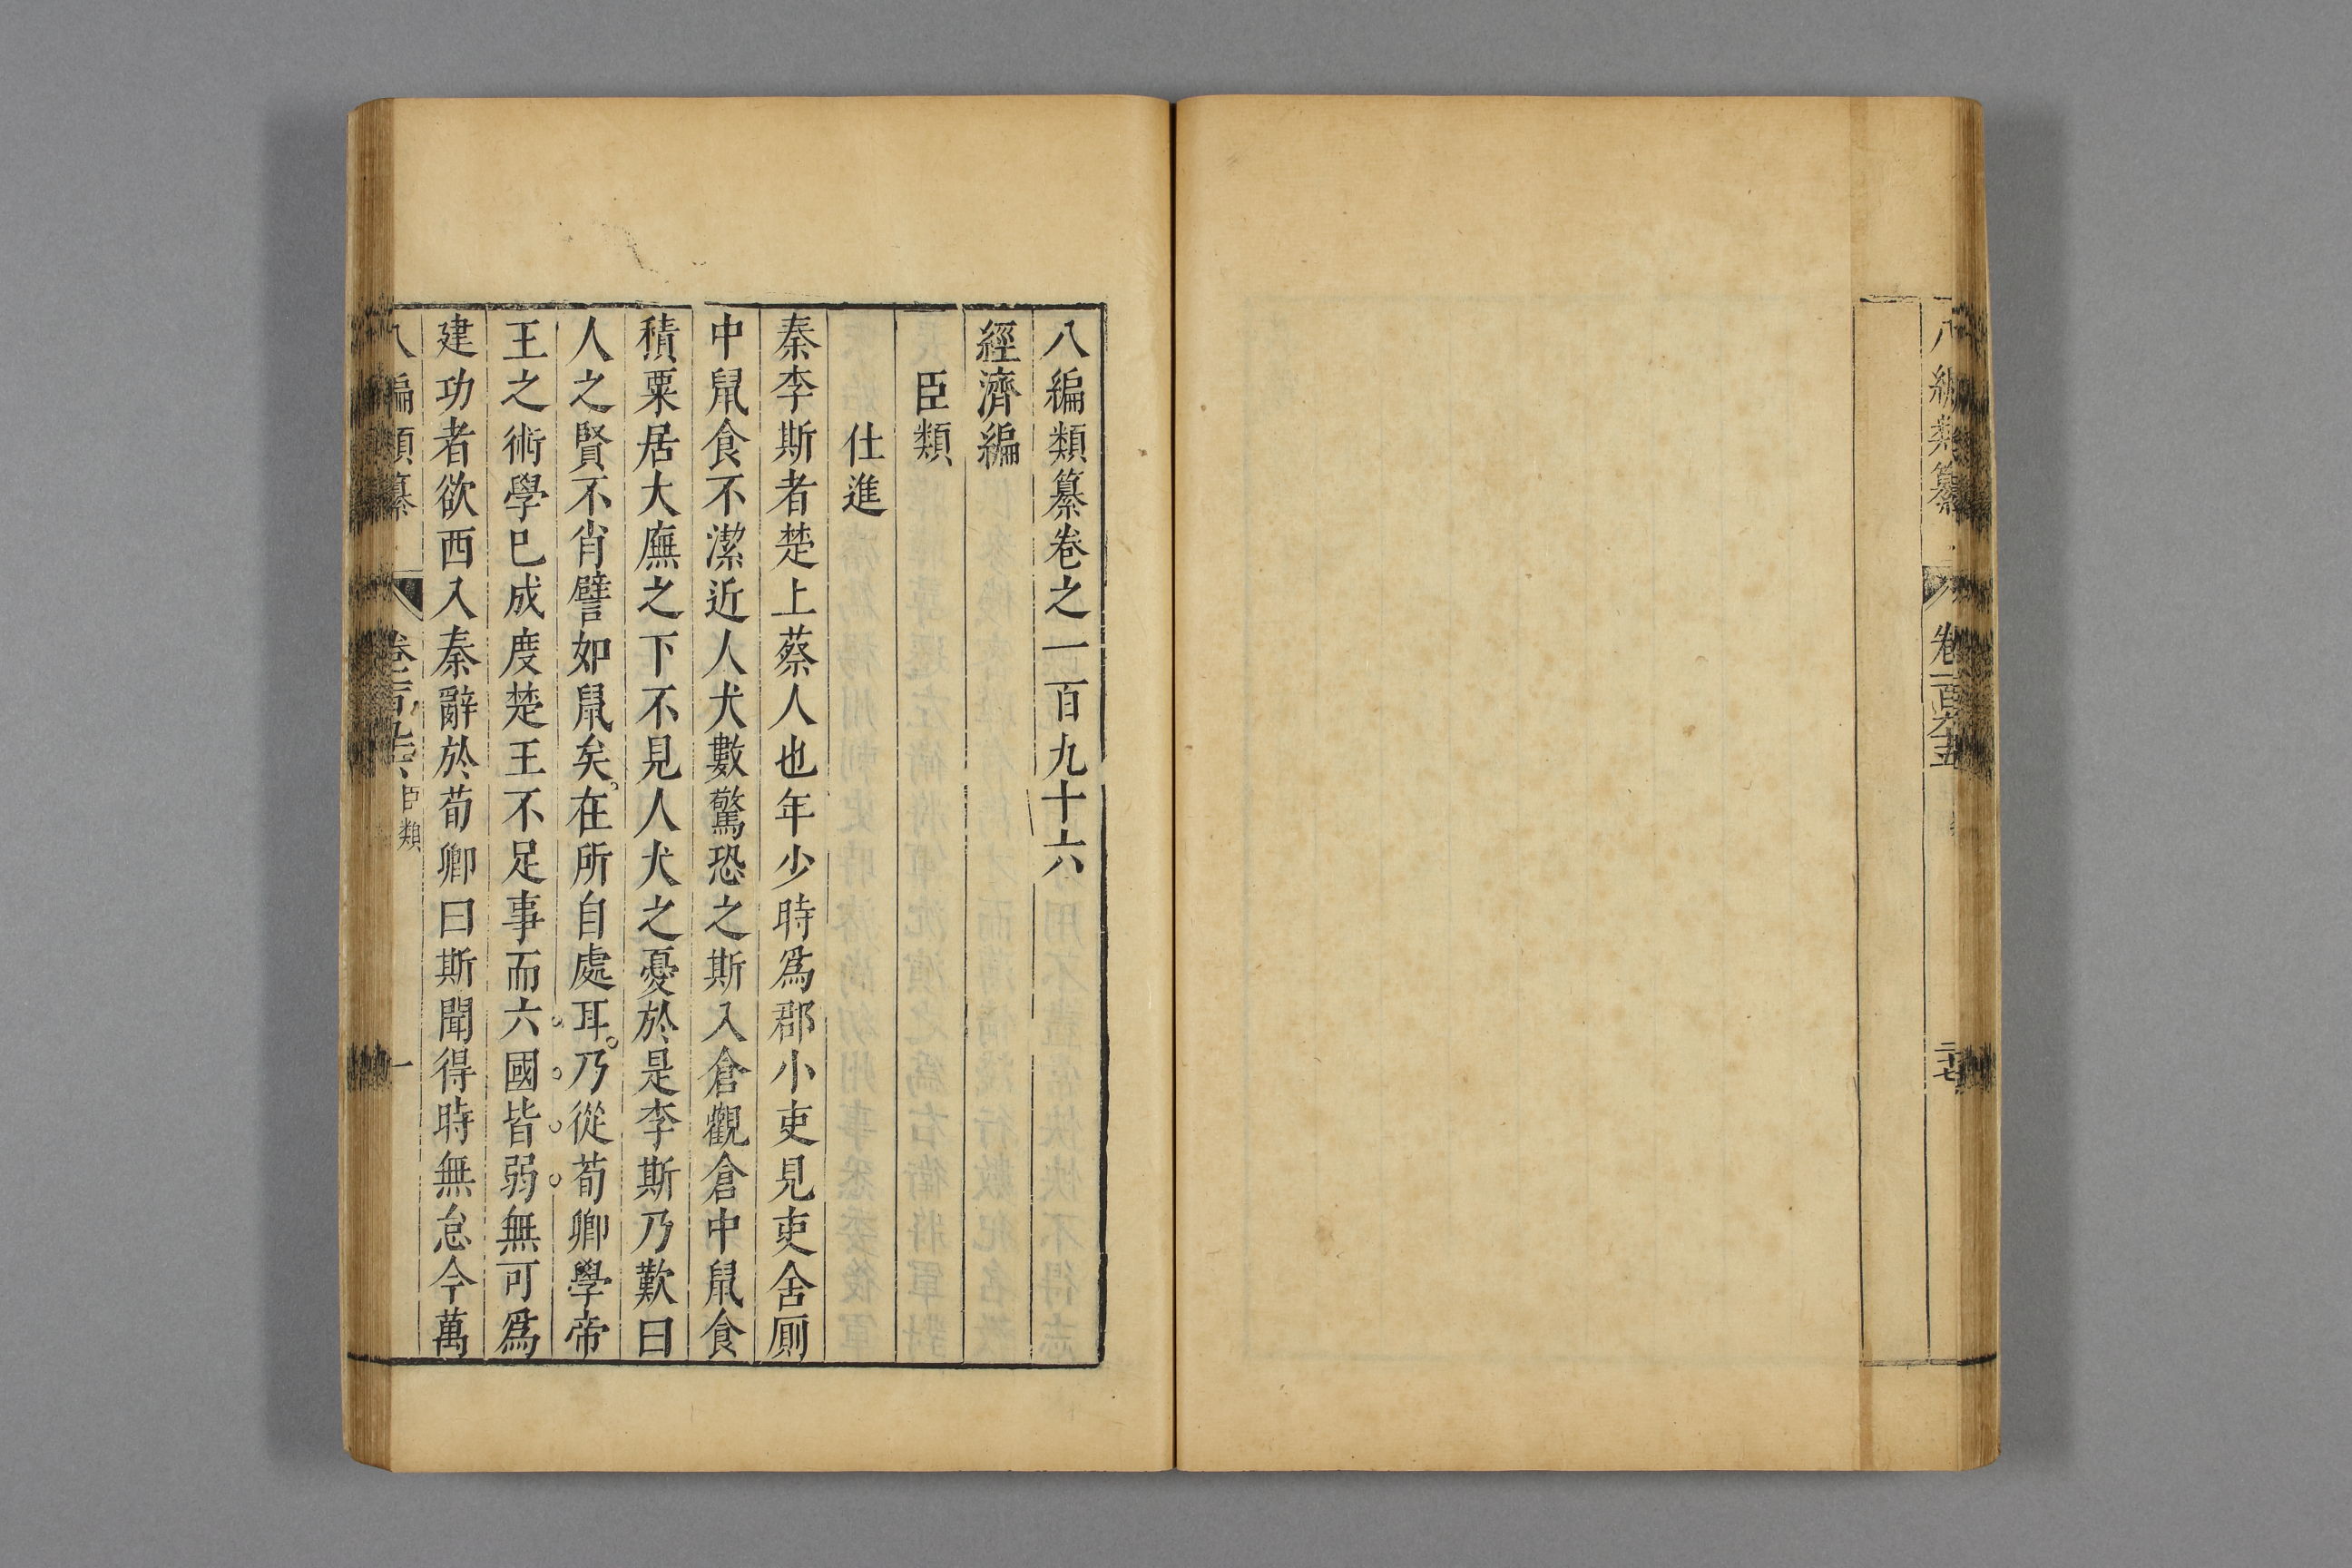 八編類纂
卷一百九十五
二十七
八編類纂卷之一百九十六
經濟編
臣類
仕進
秦李斯者楚上蔡人也年少時爲郡小吏見吏舍厠
中鼠食不潔近人犬數驚恐之斯入倉觀倉中鼠食
積粟居大廡之下不見人犬之憂於是李斯乃歎曰
人之賢不肖譬如鼠矣。在所自處耳。乃從荀卿學帝
王之術學已成度楚王不足事而六國皆弱無可爲
建功者欲西入秦辭於荀卿曰斯聞得時無怠今萬
八編類纂
臣類
一